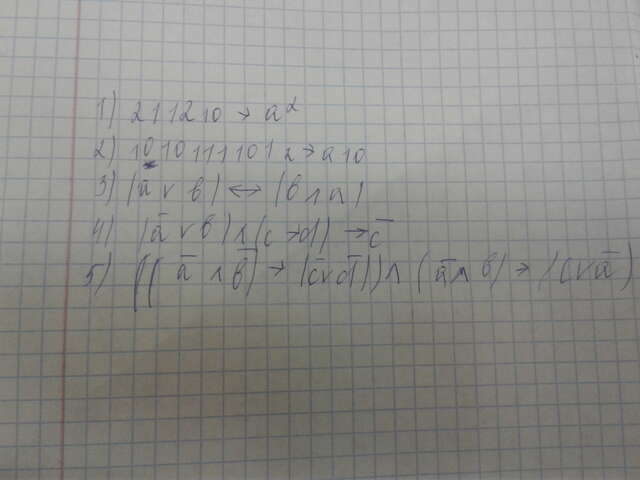 1) 211210 → a2
2) 10101111012 → a10
3) (a̅ v b) ↔ (b ∧ a)
4) (a̅ v b) ∧ (c → d)) → c̅
5) ((a̅ ∧ b̅) → (c̅ v d̅)) ∧ (a̅ ∧ b) → (c v a̅)